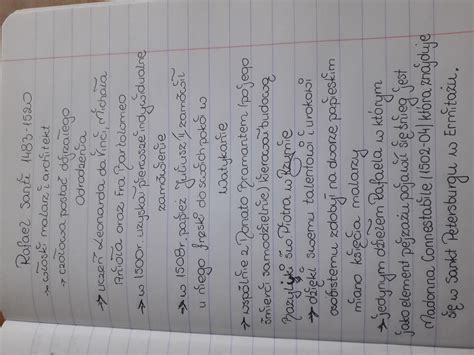 Rafael Santi 1483-1520
→ włoski malarz i architekt
→ czołowa postać dojrzałego
odrodzenia
→ uczeń Leonarda da Vinci, Michała
Anioła oraz Fra Bartolomeo
→ w 1500r. uzyskał pierwsze indywidualne
zamówienie
→ w 1508r. papież Juliusz II zamówił
u niego freski do swoich pokoi w
Watykanie
→ wspólnie z Donato Bramantem (po jego
śmierci samodzielnie) kierował budową
Bazyliki św. Piotra w Rzymie
→ dzięki swemu talentowi i urokowi
osobistemu zdobył na dworze papieskim
miano księcia malarzy
→ jedynym dziełem Rafaela w którym
jako element pejzażu pojawił się śnieg jest
Madonna Connestabile (1502-04) która znajduje
się w Sankt Petersburgu w Ermitażu.